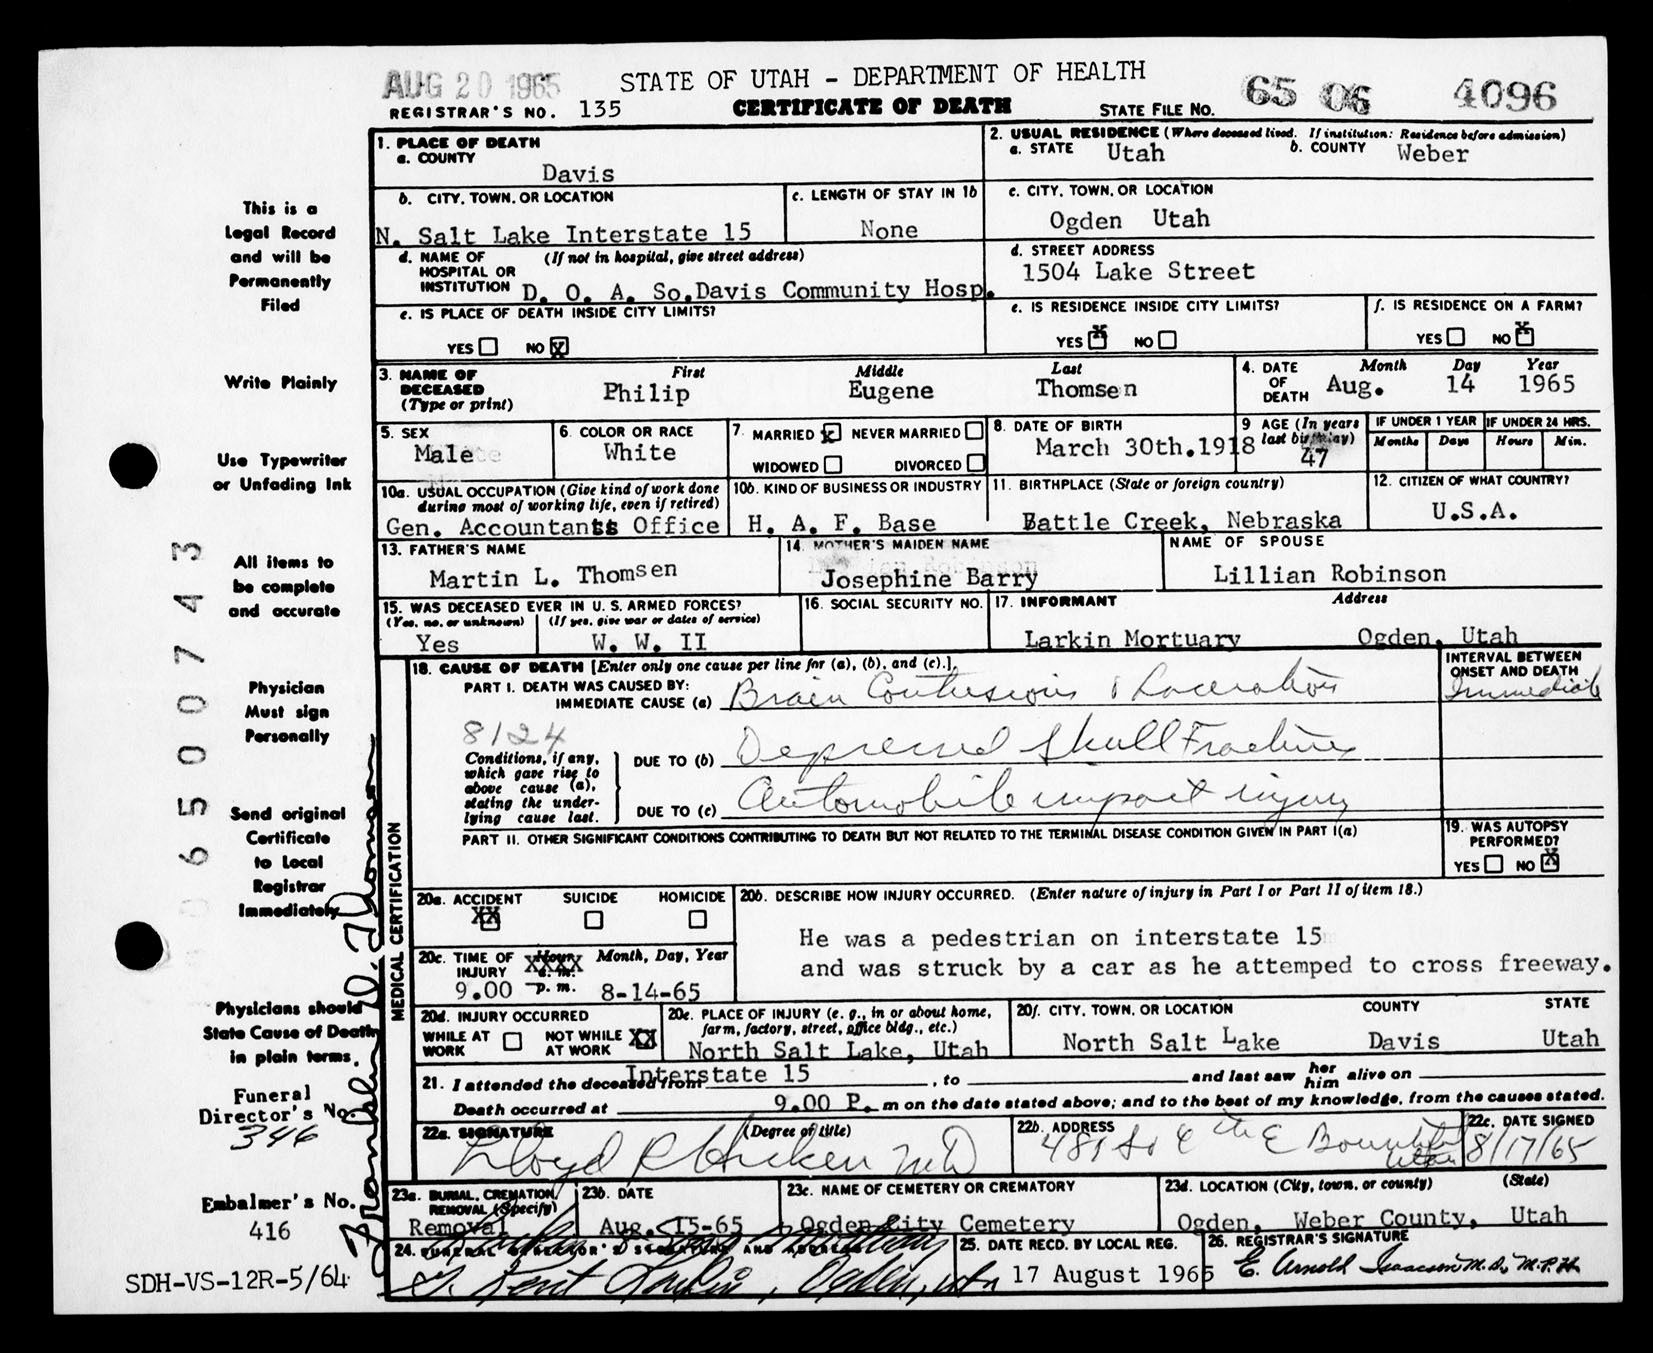 AUG 20 1965
STATE OF UTAH - DEPARTMENT OF HEALTH
REGISTRAR'S NO. 135
CERTIFICATE OF DEATH
STATE FILE NO. 65 06 4096
1. PLACE OF DEATH
a. COUNTY
Davis
2. USUAL RESIDENCE (Where deceased lived. If institution: Residence before admission)
a. STATE Utah b. COUNTY Weber
b. CITY, TOWN, OR LOCATION
N. Salt Lake Interstate 15
c. LENGTH OF STAY IN 1b
None
c. CITY, TOWN, OR LOCATION
Ogden Utah
d. NAME OF HOSPITAL OR INSTITUTION (If not in hospital, give street address)
D. O. A. So.Davis Community Hosp.
d. STREET ADDRESS
1504 Lake Street
e. IS PLACE OF DEATH INSIDE CITY LIMITS?
YES NO X
e. IS RESIDENCE INSIDE CITY LIMITS?
YES X NO
f. IS RESIDENCE ON A FARM?
YES NO X
3. NAME OF DECEASED (Type or print)
First Middle Last
Philip Eugene Thomsen
4. DATE OF DEATH
Month Day Year
Aug. 14 1965
5. SEX
Male
6. COLOR OR RACE
White
7. MARRIED X NEVER MARRIED
WIDOWED DIVORCED
8. DATE OF BIRTH
March 30th.1918
9 AGE (In years last birthday)
47
IF UNDER 1 YEAR
Months Days
IF UNDER 24 HRS.
Hours Min.
10a. USUAL OCCUPATION (Give kind of work done during most of working life, even if retired)
Gen. Accountants Office
10b. KIND OF BUSINESS OR INDUSTRY
H. A. F. Base
11. BIRTHPLACE (State or foreign country)
Battle Creek, Nebraska
12. CITIZEN OF WHAT COUNTRY?
U.S.A.
13. FATHER'S NAME
Martin L. Thomsen
14. MOTHER'S MAIDEN NAME
Josephine Barry
NAME OF SPOUSE
Lillian Robinson
15. WAS DECEASED EVER IN U. S. ARMED FORCES?
(Yes, no, or unknown) (If yes, give war or dates of service)
Yes W. W. II
16. SOCIAL SECURITY NO.
17. INFORMANT Address
Larkin Mortuary Ogden, Utah
18. CAUSE OF DEATH [Enter only one cause per line for (a), (b), and (c).]
PART I. DEATH WAS CAUSED BY:
IMMEDIATE CAUSE (a) Brain Contusions & Laceration
INTERVAL BETWEEN ONSET AND DEATH
Immediate
8124
Conditions, if any, which gave rise to above cause (a), stating the underlying cause last.
DUE TO (b) Depressed Skull Fracture
DUE TO (c) Automobile impact injury
PART II. OTHER SIGNIFICANT CONDITIONS CONTRIBUTING TO DEATH BUT NOT RELATED TO THE TERMINAL DISEASE CONDITION GIVEN IN PART I(a)
19. WAS AUTOPSY PERFORMED?
YES NO X
20a. ACCIDENT SUICIDE HOMICIDE
XX
20b. DESCRIBE HOW INJURY OCCURRED. (Enter nature of injury in Part I or Part II of item 18.)
He was a pedestrian on interstate 15
and was struck by a car as he attemped to cross freeway.
20c. TIME OF INJURY Hour a.m. p.m. Month, Day, Year
XXXX
9.00 8-14-65
20d. INJURY OCCURRED
WHILE AT WORK NOT WHILE AT WORK XX
20e. PLACE OF INJURY (e. g., in or about home, farm, factory, street, office bldg., etc.)
North Salt Lake, Utah
Interstate 15
20f. CITY, TOWN, OR LOCATION COUNTY STATE
North Salt Lake Davis Utah
21. I attended the deceased from , to and last saw her him alive on
Death occurred at 9.00 P. m on the date stated above; and to the best of my knowledge, from the causes stated.
22a. SIGNATURE (Degree or title)
Lloyd R Hicken MD
22b. ADDRESS
481 So 4th E Bountiful Utah
22c. DATE SIGNED
8/17/65
23a. BURIAL, CREMATION, REMOVAL (Specify)
Removal
23b. DATE
Aug. 15-65
23c. NAME OF CEMETERY OR CREMATORY
Ogden City Cemetery
23d. LOCATION (City, town, or county) (State)
Ogden, Weber County, Utah
24. FUNERAL DIRECTOR'S SIGNATURE AND ADDRESS
Larkin Sons Mortuary
Kent Larkin, Ogden, Utah
25. DATE RECD. BY LOCAL REG.
17 August 1965
26. REGISTRAR'S SIGNATURE
E. Arnold Isaacson M.D., M.P.H.
This is a
Legal Record
and will be
Permanently
Filed
Write Plainly
Use Typewriter
or Unfading Ink
All items to
be complete
and accurate
Physician
Must sign
Personally
Send original
Certificate
to Local
Registrar
Immediately
Physicians should
State Cause of Death
in plain terms.
Funeral
Director's No.
346
Embalmer's No.
416
SDH-VS-12R-5/64
MEDICAL CERTIFICATION
06500743